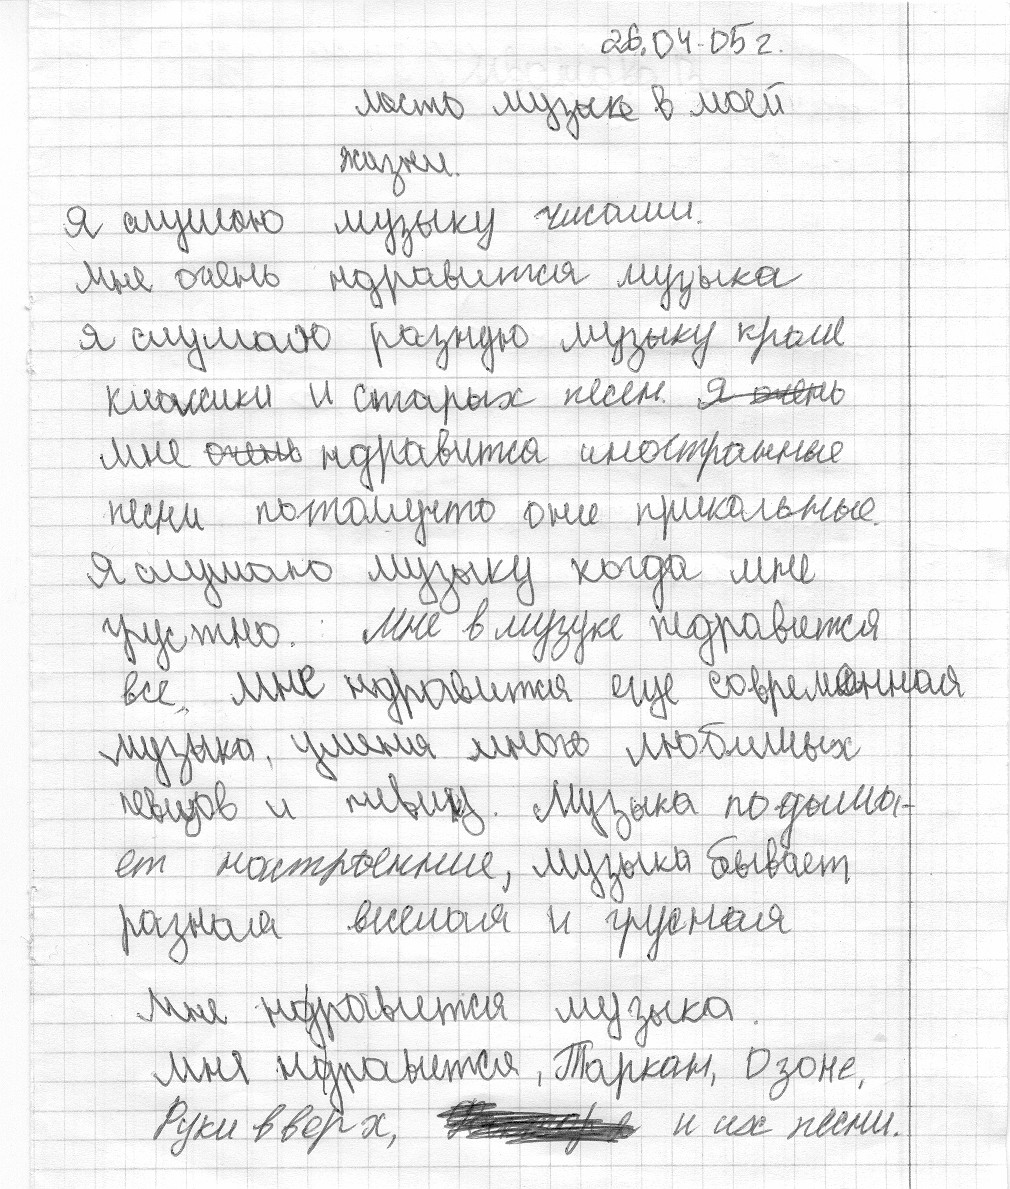 26.04.05г.
место музыке в моей
жизни.
Я слушаю музыку чисами.
Мне очень ндравится музыка
Я слушаю разную музыку кроме
классики и старых песен. Я очень
мне очень ндравится иностранные
песни потомучто они прикольные.
Я слушаю музыку когда мне
грустно. Мне в музуке ндравится
все, мне ндравится еще современная
музыка, уменя много любимых
певцов и певиц. Музыка подыма-
ет настроенние, музыка бывает
разная веселая и грусная
Мне ндравится музыка.
Мня ндравится, Таркан, Озоне,
Руки вверх, и их песни.